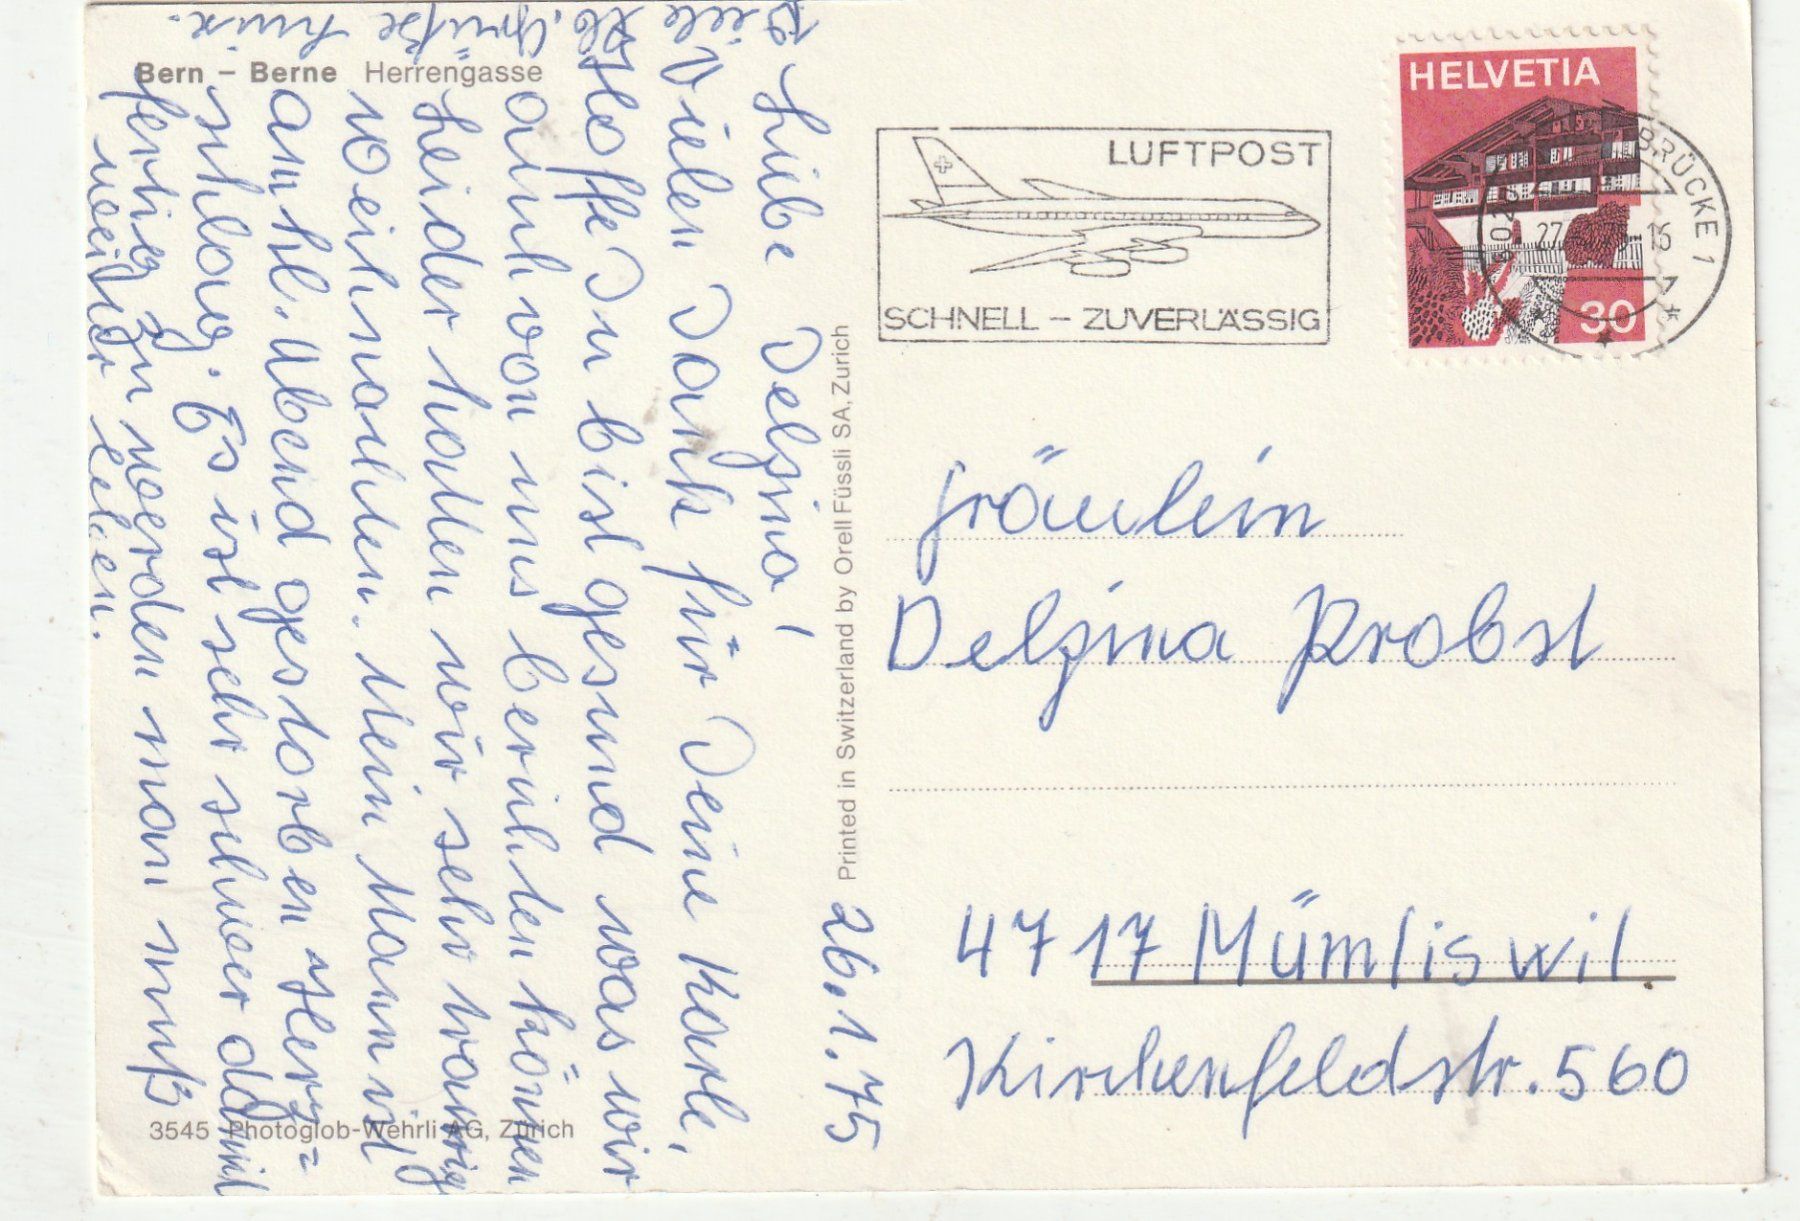 Bern – Berne Herrengasse
Liebe Delfina!
Vielen Dank für Deine Karte,
Hoffe Du bist gesund was wir
auch von uns berichten können
Leider hatten wir sehr traurig
Weihnachten. Mein Mann ist
am hl. Abend gestorben Herz=
schlag. Es ist sehr schwer damit
fertig zu werden man muß
weiter leben.
Viele lb. Grüße
26.1.75
Printed in Switzerland by Orell Füssli SA, Zürich
3545 Photoglob-Wehrli AG, Zürich
LUFTPOST
SCHNELL – ZUVERLÄSSIG
HELVETIA
30
BRÜCKE 1
27
16
Fräulein
Delfina Probst
4717 Mümliswil
Kirchenfeldstr. 560